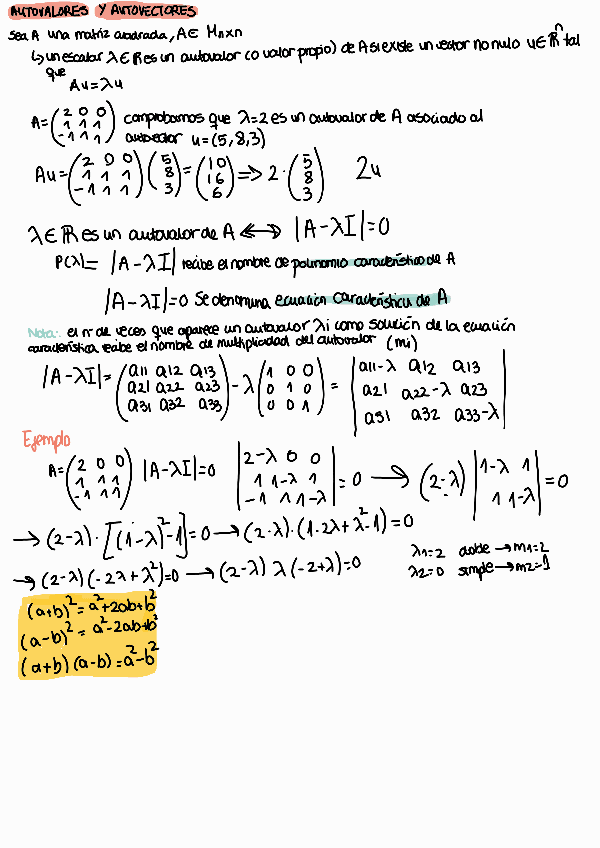 AUTOVALORES Y AUTOVECTORES
Sea A una matriz cuadrada, A∈ Mnxn
↳ un escalar λ∈ℝ es un autovalor (o valor propio) de A si existe un vector no nulo u∈ℝⁿ tal
que
Au=λu
A=(2 0 0 / 1 1 1 / -1 1 1) comprobamos que λ=2 es un autovalor de A asociado al
autovector u=(5,8,3)
Au=(2 0 0 / 1 1 1 / -1 1 1)(5 / 8 / 3)=(10 / 16 / 6)=> 2·(5 / 8 / 3) 2u
λ∈ℝ es un autovalor de A ⟷ |A-λI|=0
P(λ)= |A-λI| recibe el nombre de polinomio característico de A
|A-λI|=0 Se denomina ecuación característica de A
Nota:. el nº de veces que aparece un autovalor λi como solución de la ecuación
característica recibe el nombre de multiplicidad del autovalor (mi)
|A-λI|=(a11 a12 a13 / a21 a22 a23 / a31 a32 a33)-λ(1 0 0 / 0 1 0 / 0 0 1) = |a11-λ a12 a13 / a21 a22-λ a23 / a31 a32 a33-λ|
Ejemplo
A=(2 0 0 / 1 1 1 / -1 1 1) |A-λI|=0 |2-λ 0 0 / 1 1-λ 1 / -1 1 1-λ|=0 → (2-λ)|1-λ 1 / 1 1-λ|=0
→ (2-λ)·[(1-λ)²-1]=0 → (2-λ)·(1-2λ+λ²-1)=0
→ (2-λ)(-2λ+λ²)=0 → (2-λ) λ(-2+λ)=0
λ1=2 doble → m1=2
λ2=0 simple → m2=1
(a+b)²=a²+2ab+b²
(a-b)²= a²-2ab+b²
(a+b)(a-b)=a²-b²